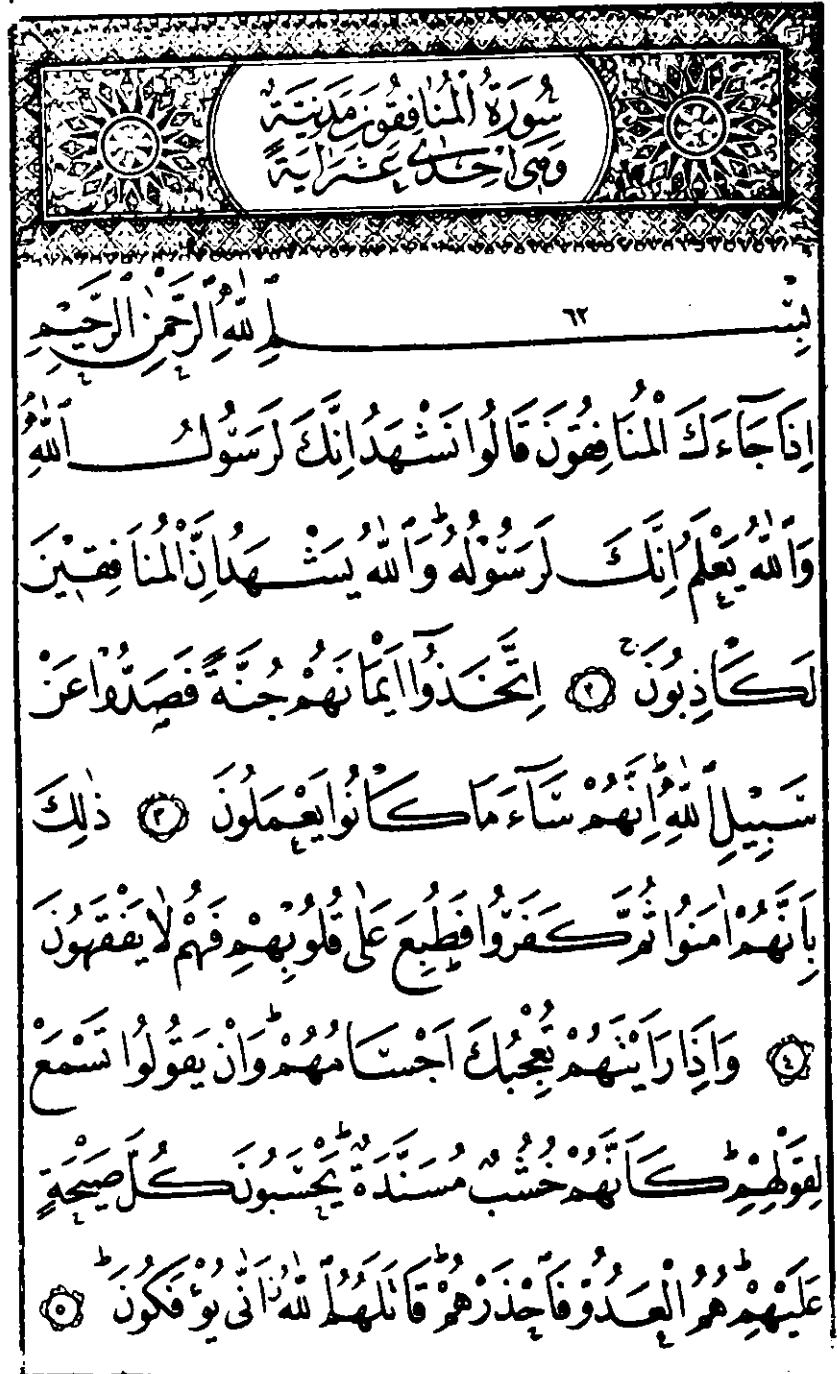 سُورَةُ الْمُنَافِقُونَ مَدَنِيَّةٌ
وَهِيَ اِحْدٰى عَشَرَ اٰيَةً
بِسْمِ اللّٰهِ الرَّحْمٰنِ الرَّحِيمِ ٦٢
اِذَا جَآءَكَ الْمُنَافِقُونَ قَالُوا نَشْهَدُ اِنَّكَ لَرَسُولُ اللّٰهِ
وَاللّٰهُ يَعْلَمُ اِنَّكَ لَرَسُولُهُ ۜ وَاللّٰهُ يَشْهَدُ اِنَّ الْمُنَافِقِينَ
لَكَاذِبُونَ ۚ ﴿٢﴾ اِتَّخَذُٓوا اَيْمَانَهُمْ جُنَّةً فَصَدُّوا عَنْ
سَبِيلِ اللّٰهِ ۜ اِنَّهُمْ سَآءَ مَا كَانُوا يَعْمَلُونَ ﴿٣﴾ ذٰلِكَ
بِاَنَّهُمْ اٰمَنُوا ثُمَّ كَفَرُوا فَطُبِعَ عَلٰى قُلُوبِهِمْ فَهُمْ لَا يَفْقَهُونَ
﴿٤﴾ وَاِذَا رَاَيْتَهُمْ تُعْجِبُكَ اَجْسَامُهُمْ ۜ وَاِنْ يَقُولُوا تَسْمَعْ
لِقَوْلِهِمْ ۜ كَاَنَّهُمْ خُشُبٌ مُسَنَّدَةٌ ۜ يَحْسَبُونَ كُلَّ صَيْحَةٍ
عَلَيْهِمْ ۜ هُمُ الْعَدُوُّ فَاحْذَرْهُمْ ۜ قَاتَلَهُمُ اللّٰهُ ۘ اَنّٰى يُؤْفَكُونَ ۜ ﴿٥﴾